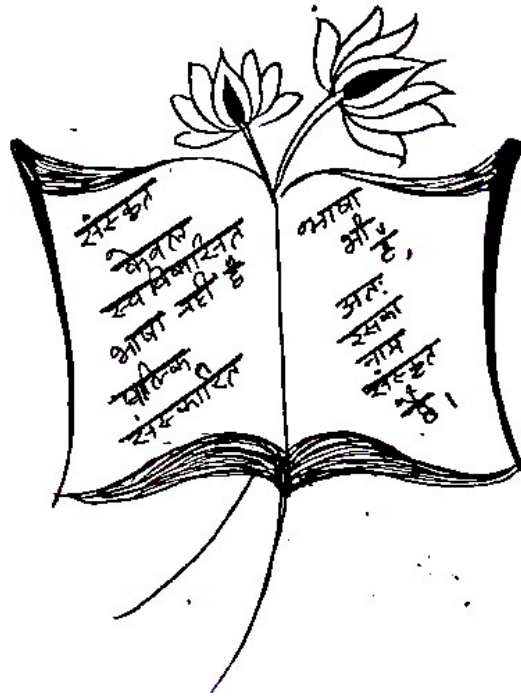 संस्कृत
केवल
स्व विकसित
भाषा नही है
बल्कि
संस्कारित
भाषा
भी है,
अतः
इसका
नाम
संस्कृत
है।